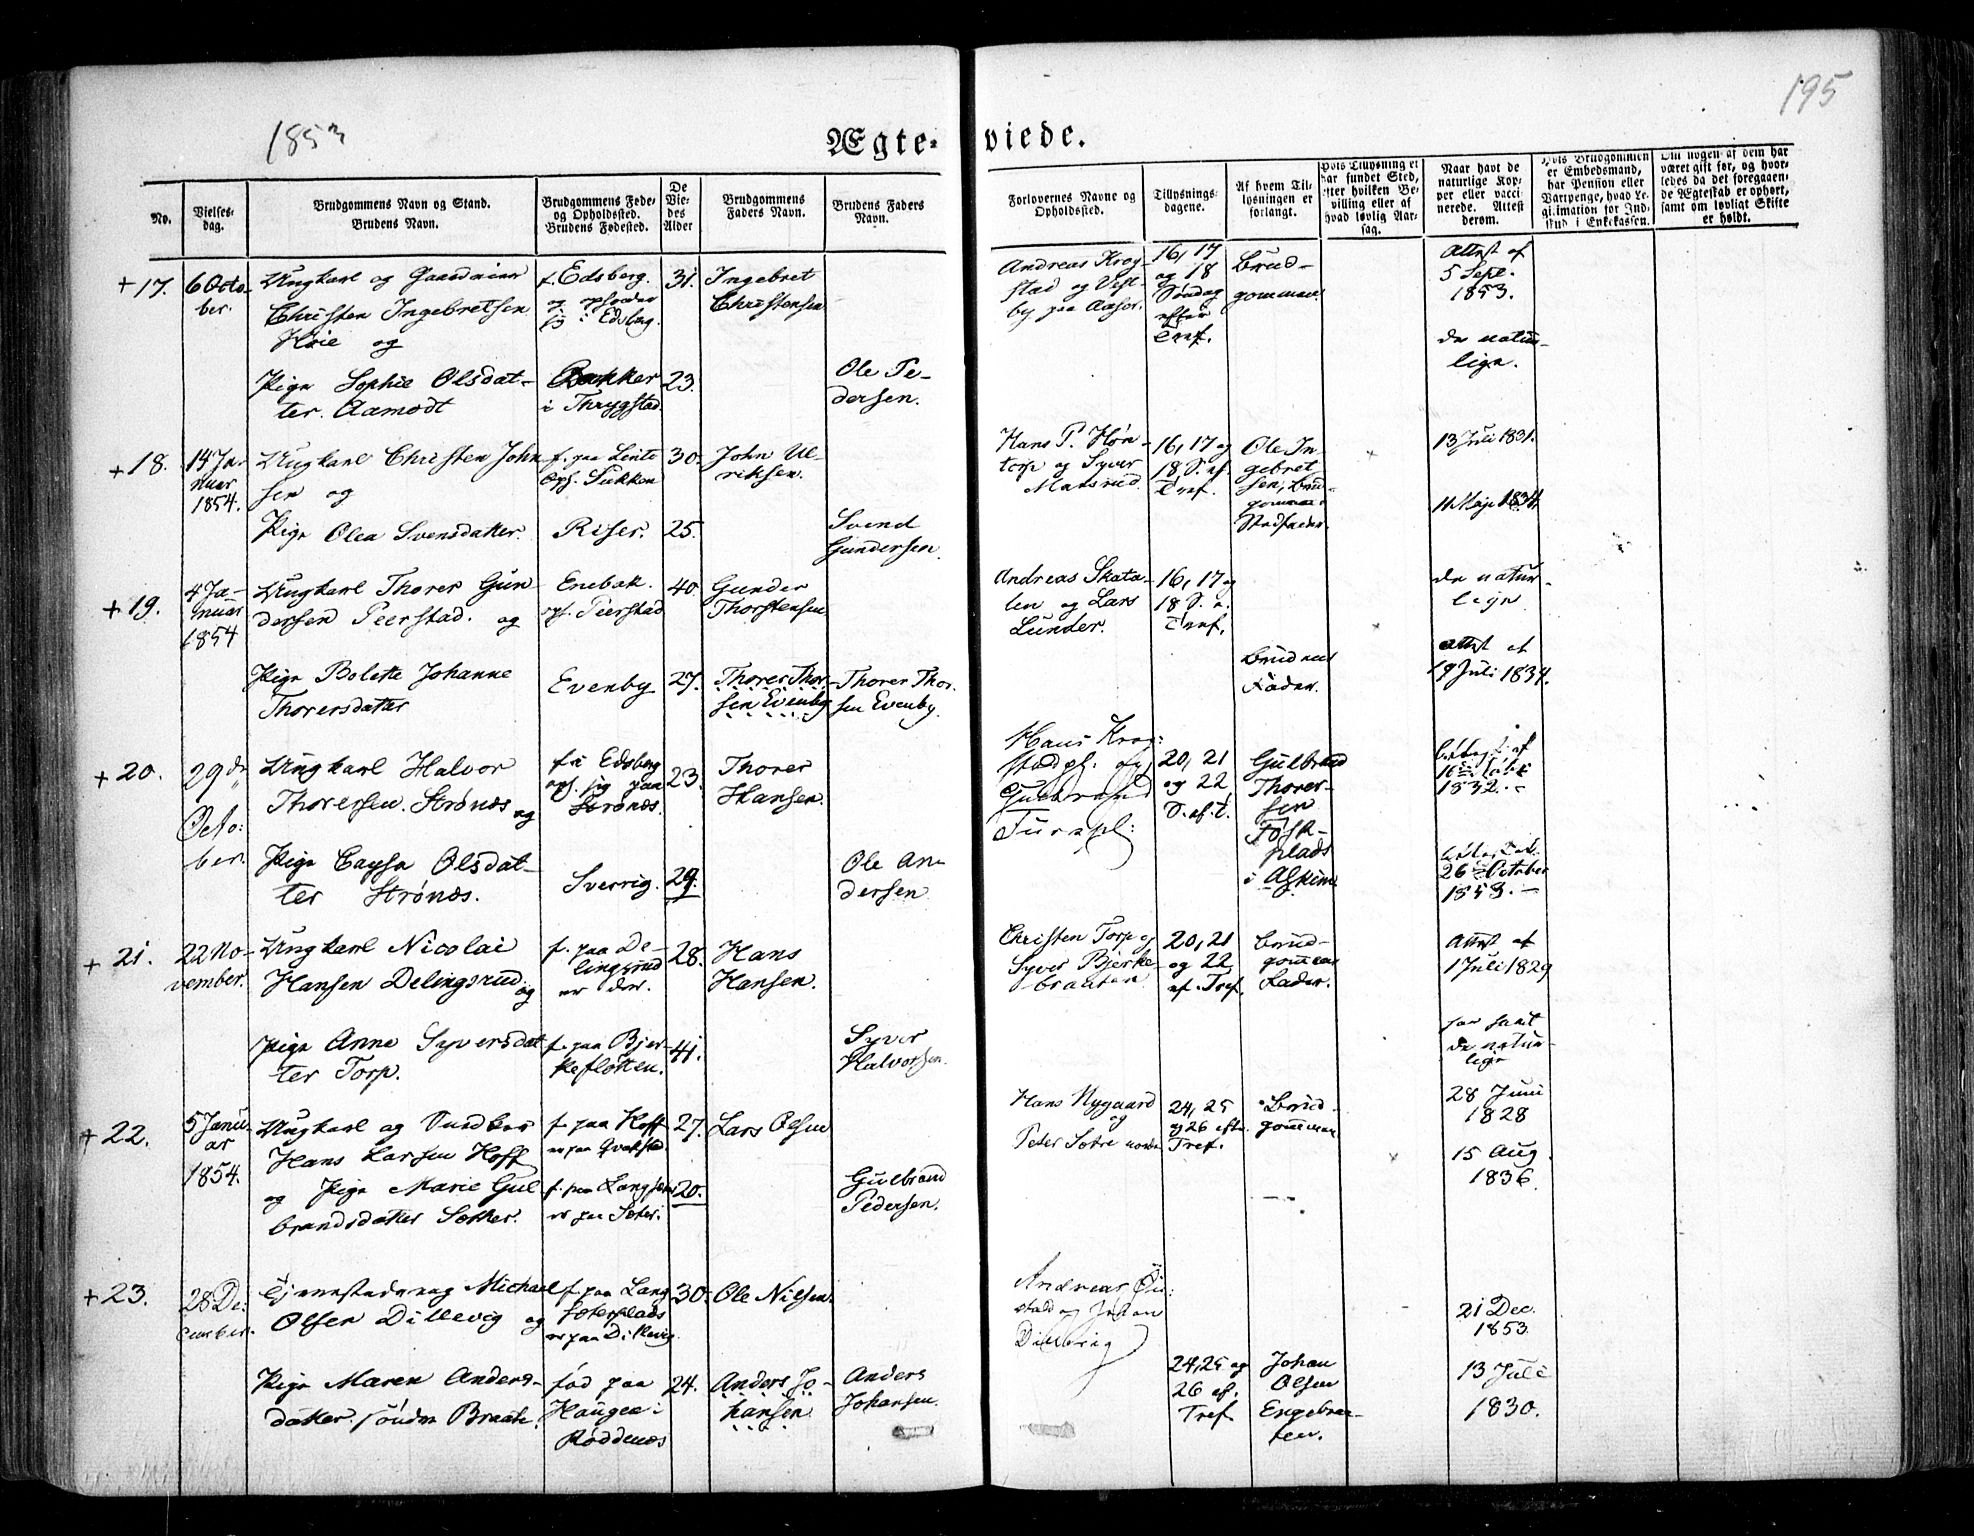 195
1853
Ægte-viede.
No.
Vielses-
dag.
Brudgommens Navn og Stand.
Brudens Navn.
Brudgommens Føde-
og Opholdssted.
Brudens Fødested.
De
Vie-
des
Alder
Brudgommens
Faders Navn.
Brudens Faders
Navn.
Forlovernes Navne og
Opholdssted.
Tillysnings-
dagene.
Af hvem Til-
lysningen er
forlangt.
Hvis Tillysning ei
har fundet Sted,
efter hvilken Be-
villing eller af
hvad lovlig Aar-
sag.
Naar havt de
naturlige Kop-
per eller vacci-
nerede. Attest
derom.
Hvis Brudgommen
er Embedsmand,
har Pension eller
Vartpenge, hvad Le-
gitimation for Ind-
skud i Enkekassen.
Om nogen af dem har
været gift før, og hvor-
ledes da det foregaaen-
de Ægteskab er ophørt,
samt om lovligt Skifte
er holdt.
+ 17.
6 Octo-
ber.
Ungkarl og Gaardeier
Christen Ingebretsen
Høie og
f. Edsberg.
og opholder
sig i Edsberg.
31.
Ingebret
Christensen
Andreas Krog-
stad og Vest-
by paa Aasor.
16, 17
og 18
Søndag
efter
Tref.
Brud-
gommen.
Attest af
5 Sept.
1853.
Pige Sophie Olsdat-
ter. Aamodt
Bakker
i Thrygstad.
23.
Ole Pe-
dersen.
de natur-
lige.
+ 18.
14 Ja-
nuar
1854.
Ungkarl Christen John
sen og
f. paa Lente
Oph. Sukken
30.
John Ul-
riksen.
Hans P. Høn-
torp og Syver
Mansrud.
16, 17 og
18 S. ef.
Tref.
Ole In-
gebret-
sen, Brud-
gommens
Stedfader.
13 Juli 1831.
Pige Olea Svensdatter.
Riser.
25.
Svend
Gundersen.
11 Maji 1834.
+ 19.
4 Ja-
nuar
1854
Ungkarl Thorer Gun
dersen Peerstad. og
Enebak.
oph. Peerstad
40.
Gunder
Thorstensen
Andreas Skata-
len og Lars
Lunder.
16, 17 og
18 S. e.
Tref.
de natur-
lige
Pige Bolette Johanne
Thorersdatter
Evenby
27.
Thorer Thor-
sen Evenby
Thorer Thor.
sen Evenby.
Brudens
Fader.
Attest af
19 Juli 1834.
+ 20.
29de
Octo:
ber.
Ungkarl Halvor
Thorersen. Strønæs og
f. i Edsberg
oph. sig paa
Strønæs.
23.
Thorer
Hansen.
Hans Krog:
stadpl. og
Gulbrand
Turapl:
20, 21
og 22
S. ef. t.
Gulbrand
Thorer-
sen
Fosk-
plads
i Askim
1832.
Pige Caysa Olsdat-
ter Strønæs.
Sverrig.
29.
Ole An
dersen
26 October
1853.
+ 21.
22 No-
vember.
Ungkarl Nicolai
Hansen Delingsrud og
f. paa De-
lingsrud
er der.
28.
Hans
Hansen.
Christen Torp og
Syver Bjerke-
brauten.
20, 21
og 22
ef. Tref.
Brud-
gommens
Fader.
Attest af
1 Juli 1829
Pige Anne Syversdat
ter Torp.
f. paa Bjer-
kefløtten.
41.
Syver
Halvorsen
har havt
de natur-
lige
+ 22.
5 Janu-
ar
1854.
Ungkarl og
Hans Larsen Hoff
f. paa Hoff
er paa Gvakstad.
27.
Lars Olsen
Hans Nygaard
og
Peter Sætre
24, 25
og 26 efter
Tref.
Brud-
gommen
28 Juni
1828
og Pige Marie Gul
brandsdatter Sætter.
f. paa Langsæter
er paa Sæter.
20.
Gulbrand
Pedersen.
15 Aug.
1836.
+ 23.
28 De:
cember.
Tjenestedreng Michael
Olsen Dillevig og
f. paa Lang
sæterplads
er paa Dillevig.
30.
Ole Nilsen.
Andreas
og Johan
Dillevig
21 Dec.
1853.
Pige Maren Anders-
datter. søndre Braate.
fød paa
Haugen i
Røddenæs
24.
Anders Jo-
hansen
Anders
Johansen.
24, 25 og
26 ef.
Tref.
Johan
Olsen
Engebraa-
ten.
13 Juli
1830.